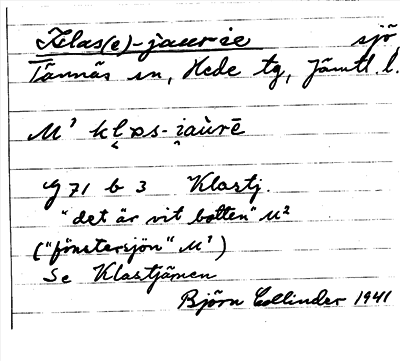 Klas(e)-jaurie sjö
Tännäs sn, Hede tg, Jämtl. l.
M¹ kl̯ɒs-i̯aùrē
G 71 b 3 Klastj.
"det är vit botten" M²
("fönstersjön" M¹)
Se Klastjärnen
Björn Collinder 1941